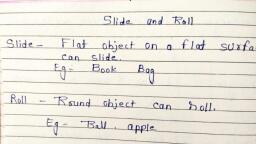 Slide and Roll
Slide - Flat object on a flat surfa
can slide.
Eg:- Book Bag
Roll - Round object can roll.
Eg - Ball, apple